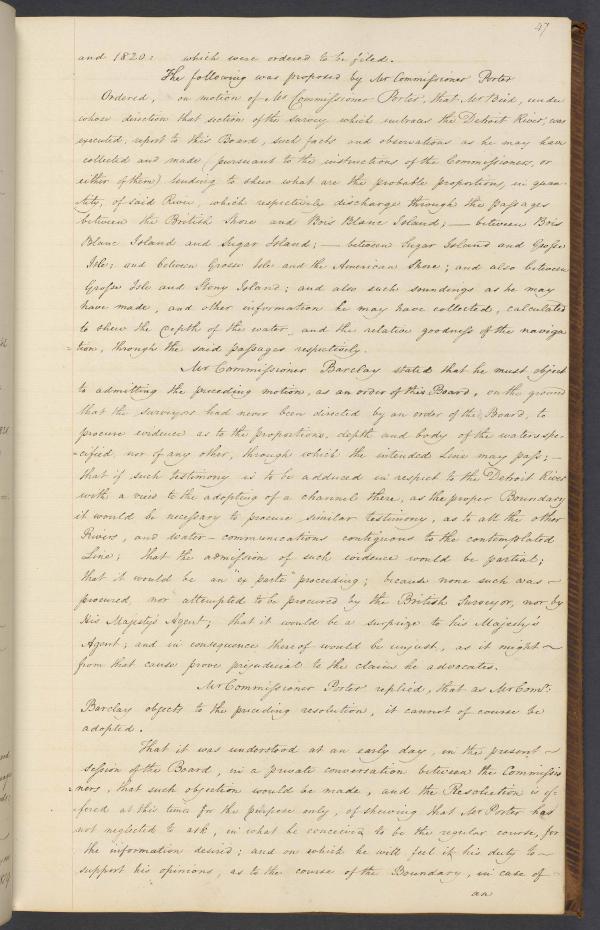 47
and 1820: which were ordered to be filed.
The following was proposed by Mr Commissioner Porter
Ordered, on motion of Mr Commissioner Porter, that Mr Bird, under
whose direction that section of the survey which embraces the Detroit River, was
executed, report to this Board, such facts and observations as he may have
collected and made (pursuant to the instructions of the Commissioners, or
either of them) tending to shew what are the probable proportions, in quan-
tity, of said River, which respectively discharge through the passages
between the British Shore and Bois Blanc Island; — between Bois
Blanc Island and Sugar Island; — between Sugar Island and Grosse
Isle; and between Grosse Isle and the American Shore; and also between
Grosse Isle and Stony Island; and also such soundings as he may
have made, and other information he may have collected, calculated
to shew the depth of the water, and the relative goodness of the naviga
-tion, through the said passages respectively.
Mr Commissioner Barclay stated that he must object
to admitting the preceding motion, as an order of this Board, on the ground
that the surveyors had never been directed by an order of the Board, to
procure evidence as to the proportions, depth and body of the waters spe-
-cified, nor of any other, through which the intended Line may pass; —
that if such testimony is to be adduced in respect to the Detroit River
with a view to the adopting of a channel there, as the proper Boundary
it would be necessary to procure similar testimony, as to all the other
Rivers, and water-communications contiguous to the contemplated
Line; that the admission of such evidence would be partial;
that it would be an "ex parte" proceeding; because none such was
procured, nor attempted to be procured by the British Surveyor, nor by
His Majesty's Agent; that it would be a surprize to his Majesty's
Agent; and in consequence thereof would be unjust, as it might
from that cause prove prejudicial to the claim he advocates.
Mr Commissioner Porter replied, that as Mr Comr:
Barclay objects to the preceding resolution, it cannot of course be
adopted.
That it was understood at an early day, in the present
session of the Board, in a private conversation between the Commissio
-ners, that such objection would be made, and the Resolution is of-
fered at this time for the purpose only, of shewing that Mr Porter has
not neglected to ask, in what he conceives to be the regular course, for
the information desired; and on which he will feel it his duty to
support his opinions, as to the course of the Boundary, in case of
an